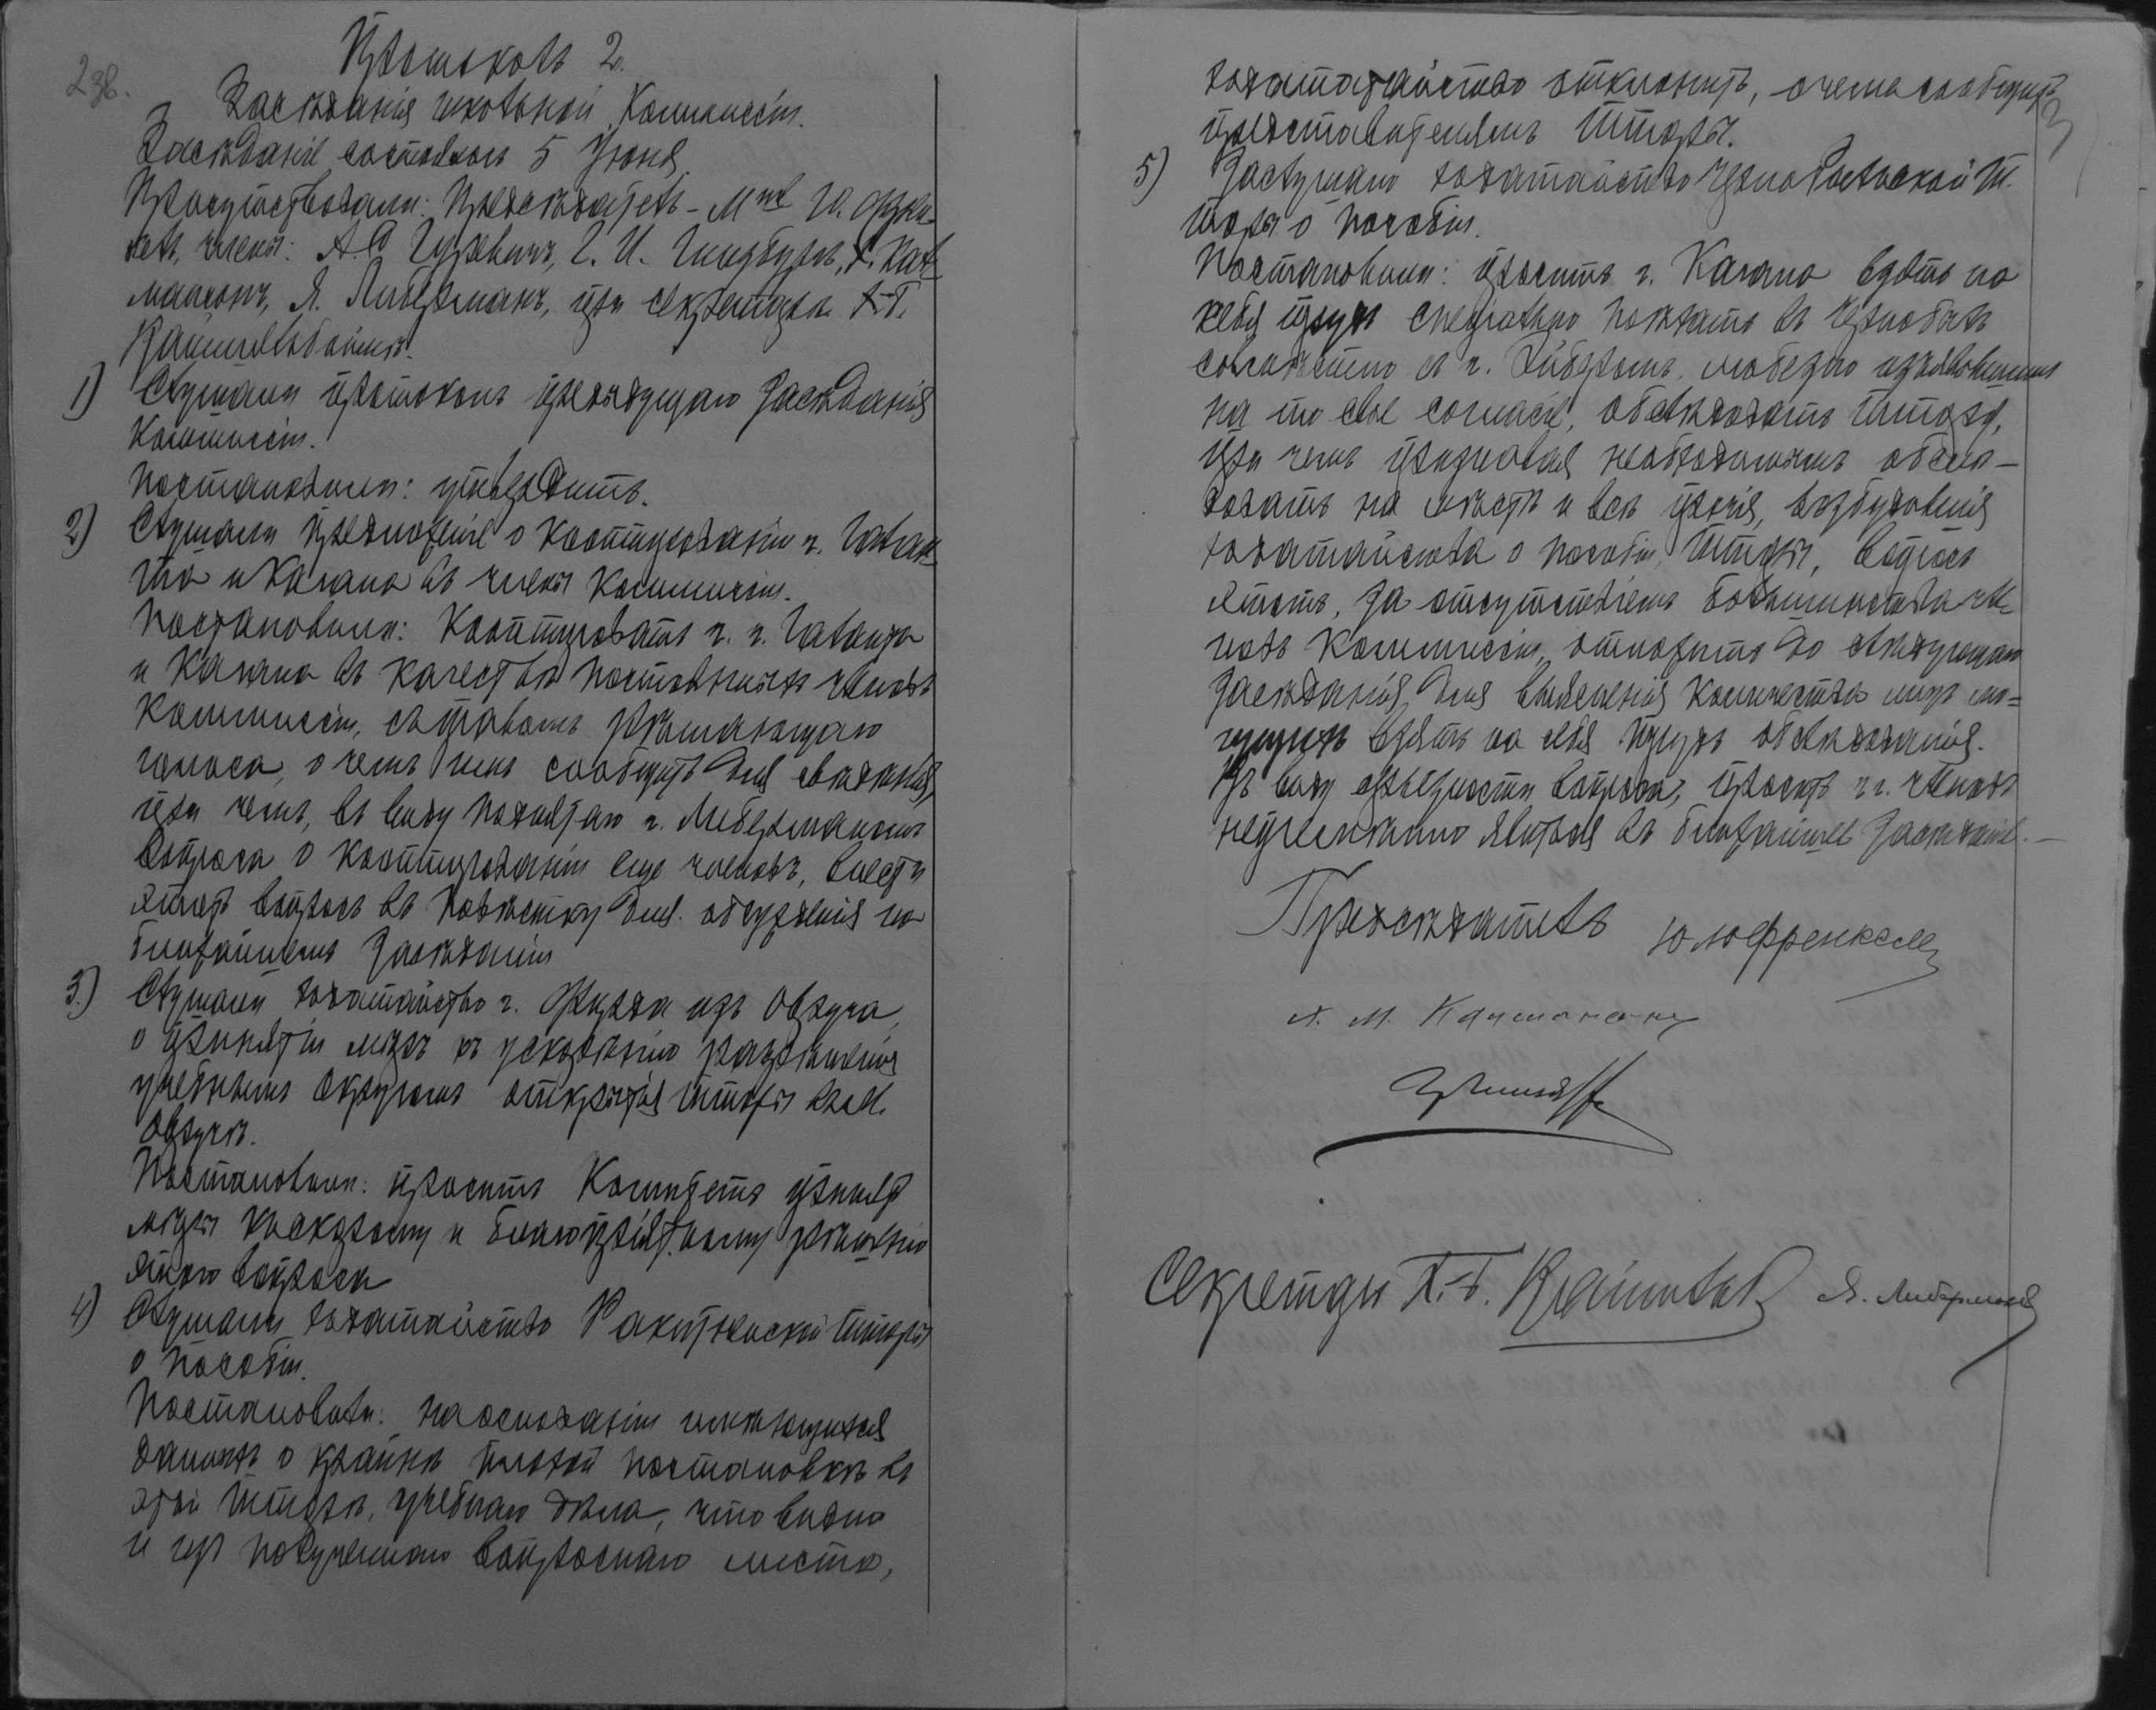 238.
Протоколъ 2.
Засѣданія школьной Коммиссіи.
Засѣданіе состоялось 5 Іюня.
Присутствовали: Предсѣдатель - М-me Ю. Френ-
кель, члены: А. Гуревичъ, Г. И. Гинзбургъ,
Я. Либерманъ, при секретарѣ
1) Слушали протоколъ предыдущаго Засѣданія
Коммиссіи.
Постановили: утвердить.
2) Слушали предложеніе о кооптированіи г.
и Кагана въ члены Коммиссіи.
Постановили: Кооптировать г. г.
и Кагана въ качествѣ постоянныхъ членовъ
Коммиссіи, съ правомъ рѣшающаго
голоса, о чемъ имъ сообщить для свѣдѣнія,
при чемъ, въ виду поднятаго г. Либерманомъ
вопроса о кооптированіи еще членовъ, внести
этотъ вопросъ въ повѣстку для обсужденія на
ближайшемъ Засѣданіи
3.) Слушали ходатайство г. изъ Овруча,
о принятіи мѣръ къ ускоренію разрѣшенія
учебнымъ Округомъ открытія школы въ м.
Овручѣ.
Постановили: просить Комитетъ принять
мѣры къ скорому и благопріятному рѣшенію
этого вопроса
4) Слушали ходатайство Ракитянской школы
о пособіи.
Постановили: на основаніи имѣющихся
данныхъ о крайнѣ плохой постановкѣ въ
этой школѣ, учебнаго дѣла, что видно
и изъ полученнаго вопроснаго листа,
ходатайство отклонить, о чемъ сообщить
представителямъ школы.
5) Заслушано ходатайство Чернобыльской Ш.
школы о пособіи.
Постановили: просить г. Кагана взять на
себя трудъ спеціально поѣхать въ Чернобыль
совмѣстно съ г. любезно изъявившимъ
на то свое согласіе, обслѣдовать школу,
при чемъ признавая необходимымъ обслѣ-
довать на мѣстѣ и всѣ прочія, возбудившія
ходатайства о пособіи, школы, вопросъ
этотъ, за отсутствіемъ большинства чле-
новъ Коммиссіи, отложить до слѣдующаго
засѣданія для выясненія количества лицъ мо-
гущихъ взять на себя трудъ обслѣдованія.
Въ виду серьезности вопроса, просить г г. членовъ
непремѣнно явиться въ ближайшее Засѣданіе. —
Предсѣдатель Ю Френкель
Секретарь Я. Либерманъ